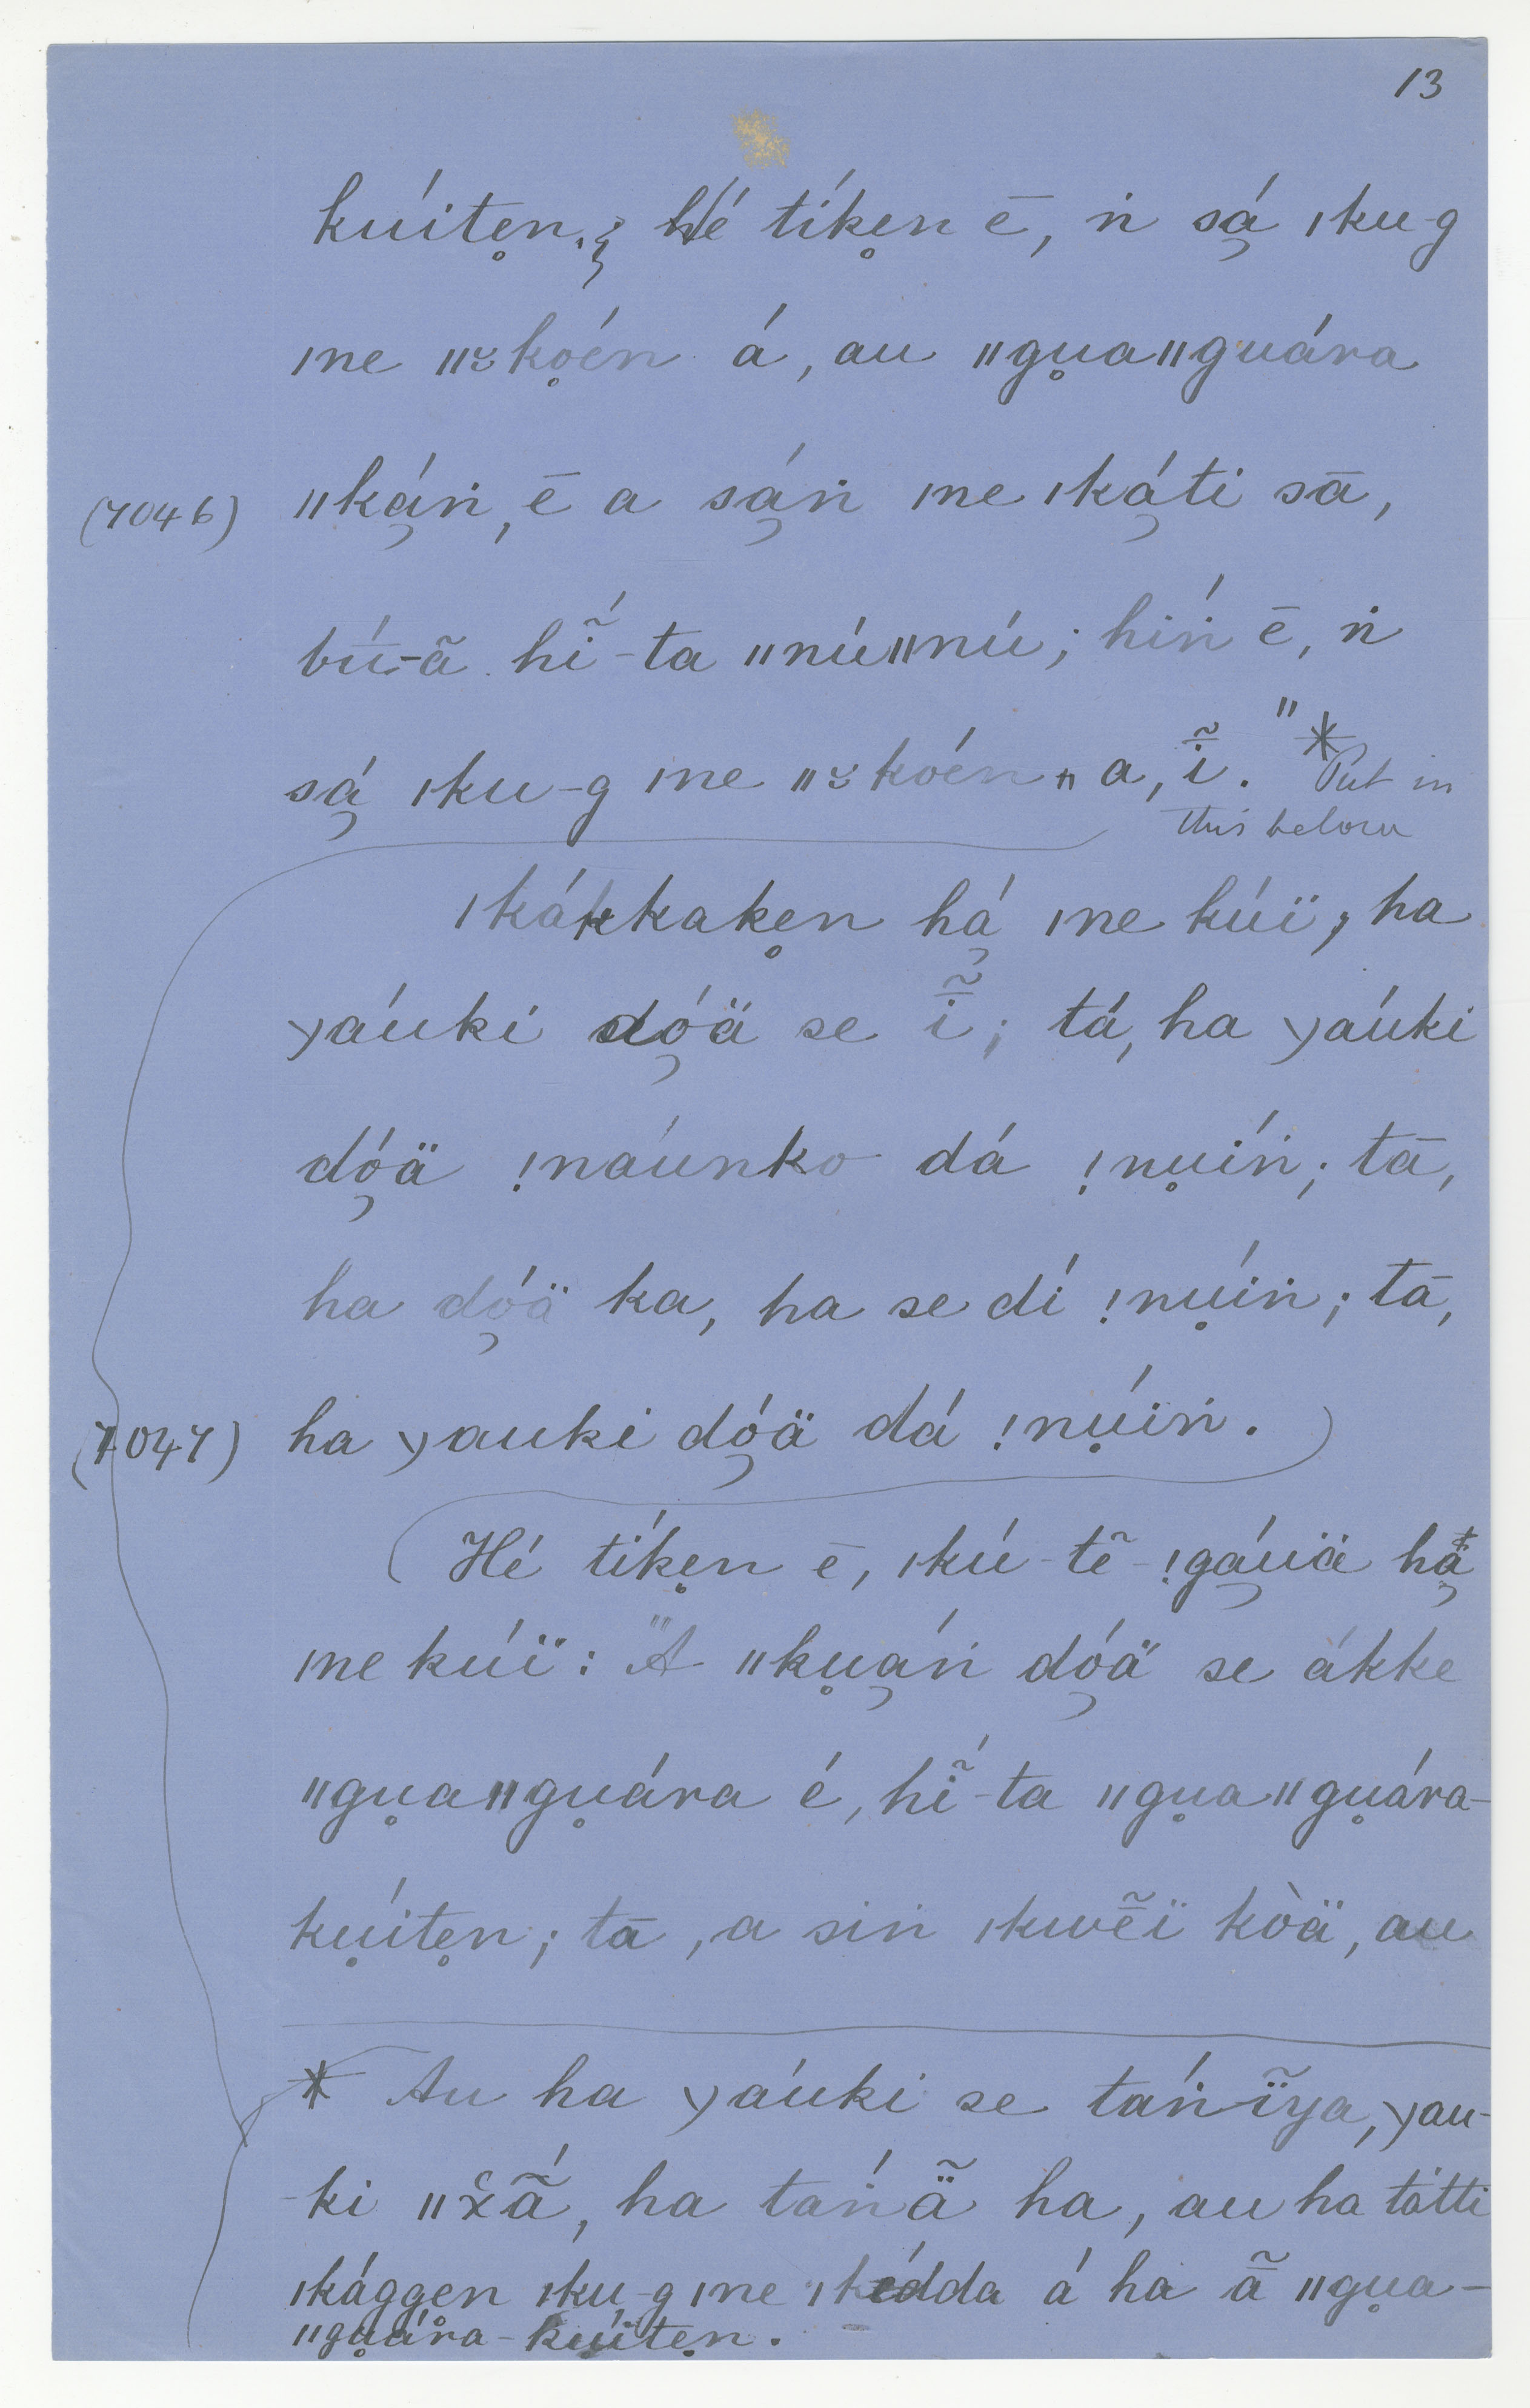 13
kúitẹn.; hé tíkẹn ē, ṅ sá̧ ǀku-g
ǀne ǁ˜kọén á, au ǁgụaǁguára
(7046) ǁká̧ṅ, ē a sá̧ṅ ǀne ǀká̧ti sā,
bú-ā̃ hĩ́-ta ǁnúǁnú; híṅ ē, ṅ
sá̧ ǀku-g ǀne ǁ˜koén a, ī̃." * Put in
this below
ǀkákkakẹn há̧ ǀne kúï, ha
yáuki dó̧ä se ī̃; tá, ha yáuki
dó̧ä ǃnáunko dá ǃnụíṅ; tā,
ha dó̧ä ka, ha se dí ǃnụ́iṅ; tā,
(7047) ha yauki dó̧ä dá ǃnụ́iṅ.)
(Hé tíkẹn ē, ǀkú-tẽ-ǃgá̧uä hä̧*
ǀne kúï: "A ǁkụá̧ṅ dó̧ä se ákke
ǁgụaǁgụára é, hĩ́-ta ǁgụaǁgụára-
kụ́itẹn; tā, a siṅ ǀkwē̃ï kòä, au
* Au ha yáuki se táṅ-ï̃ya, yau-
-ki ǁx̆ã́, ha táṅä̃ ha, au ha tátti
ǀkággen ǀku-g ǀne ǀkédda á ha ā̃ ǁgụa-
ǁgụára-kụ́itẹn.